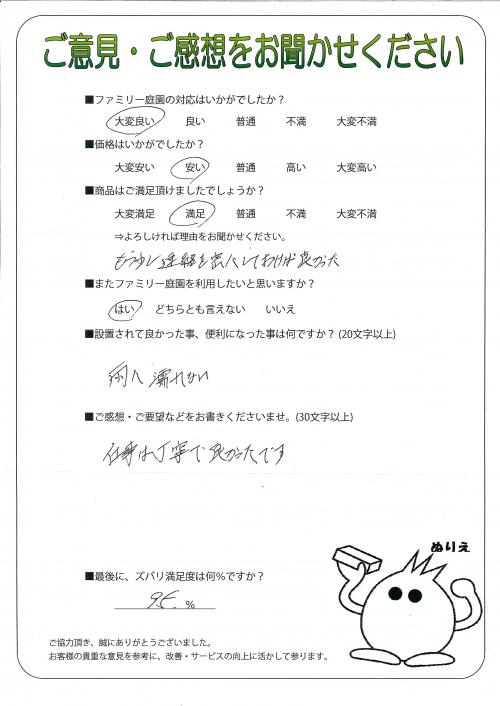 ご意見・ご感想をお聞かせください
■ファミリー庭園の対応はいかがでしたか？
大変良い 良い 普通 不満 大変不満
■価格はいかがでしたか？
大変安い 安い 普通 高い 大変高い
■商品はご満足頂けましたでしょうか？
大変満足 満足 普通 不満 大変不満
⇒よろしければ理由をお聞かせください。
もう少し連絡を密にしておけば良かった
■またファミリー庭園を利用したいと思いますか？
はい どちらとも言えない いいえ
■設置されて良かった事、便利になった事は何ですか？(20文字以上)
雨に濡れない
■ご感想・ご要望などをお書きくださいませ。(30文字以上)
仕事は丁寧で良かったです
ぬりえ
■最後に、ズバリ満足度は何%ですか？
95 %
ご協力頂き、誠にありがとうございました。
お客様の貴重な意見を参考に、改善・サービスの向上に活かして参ります。